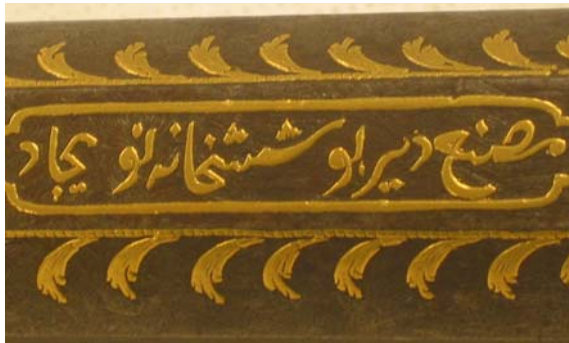 مصنع دیربو ششخانه نو یجاد